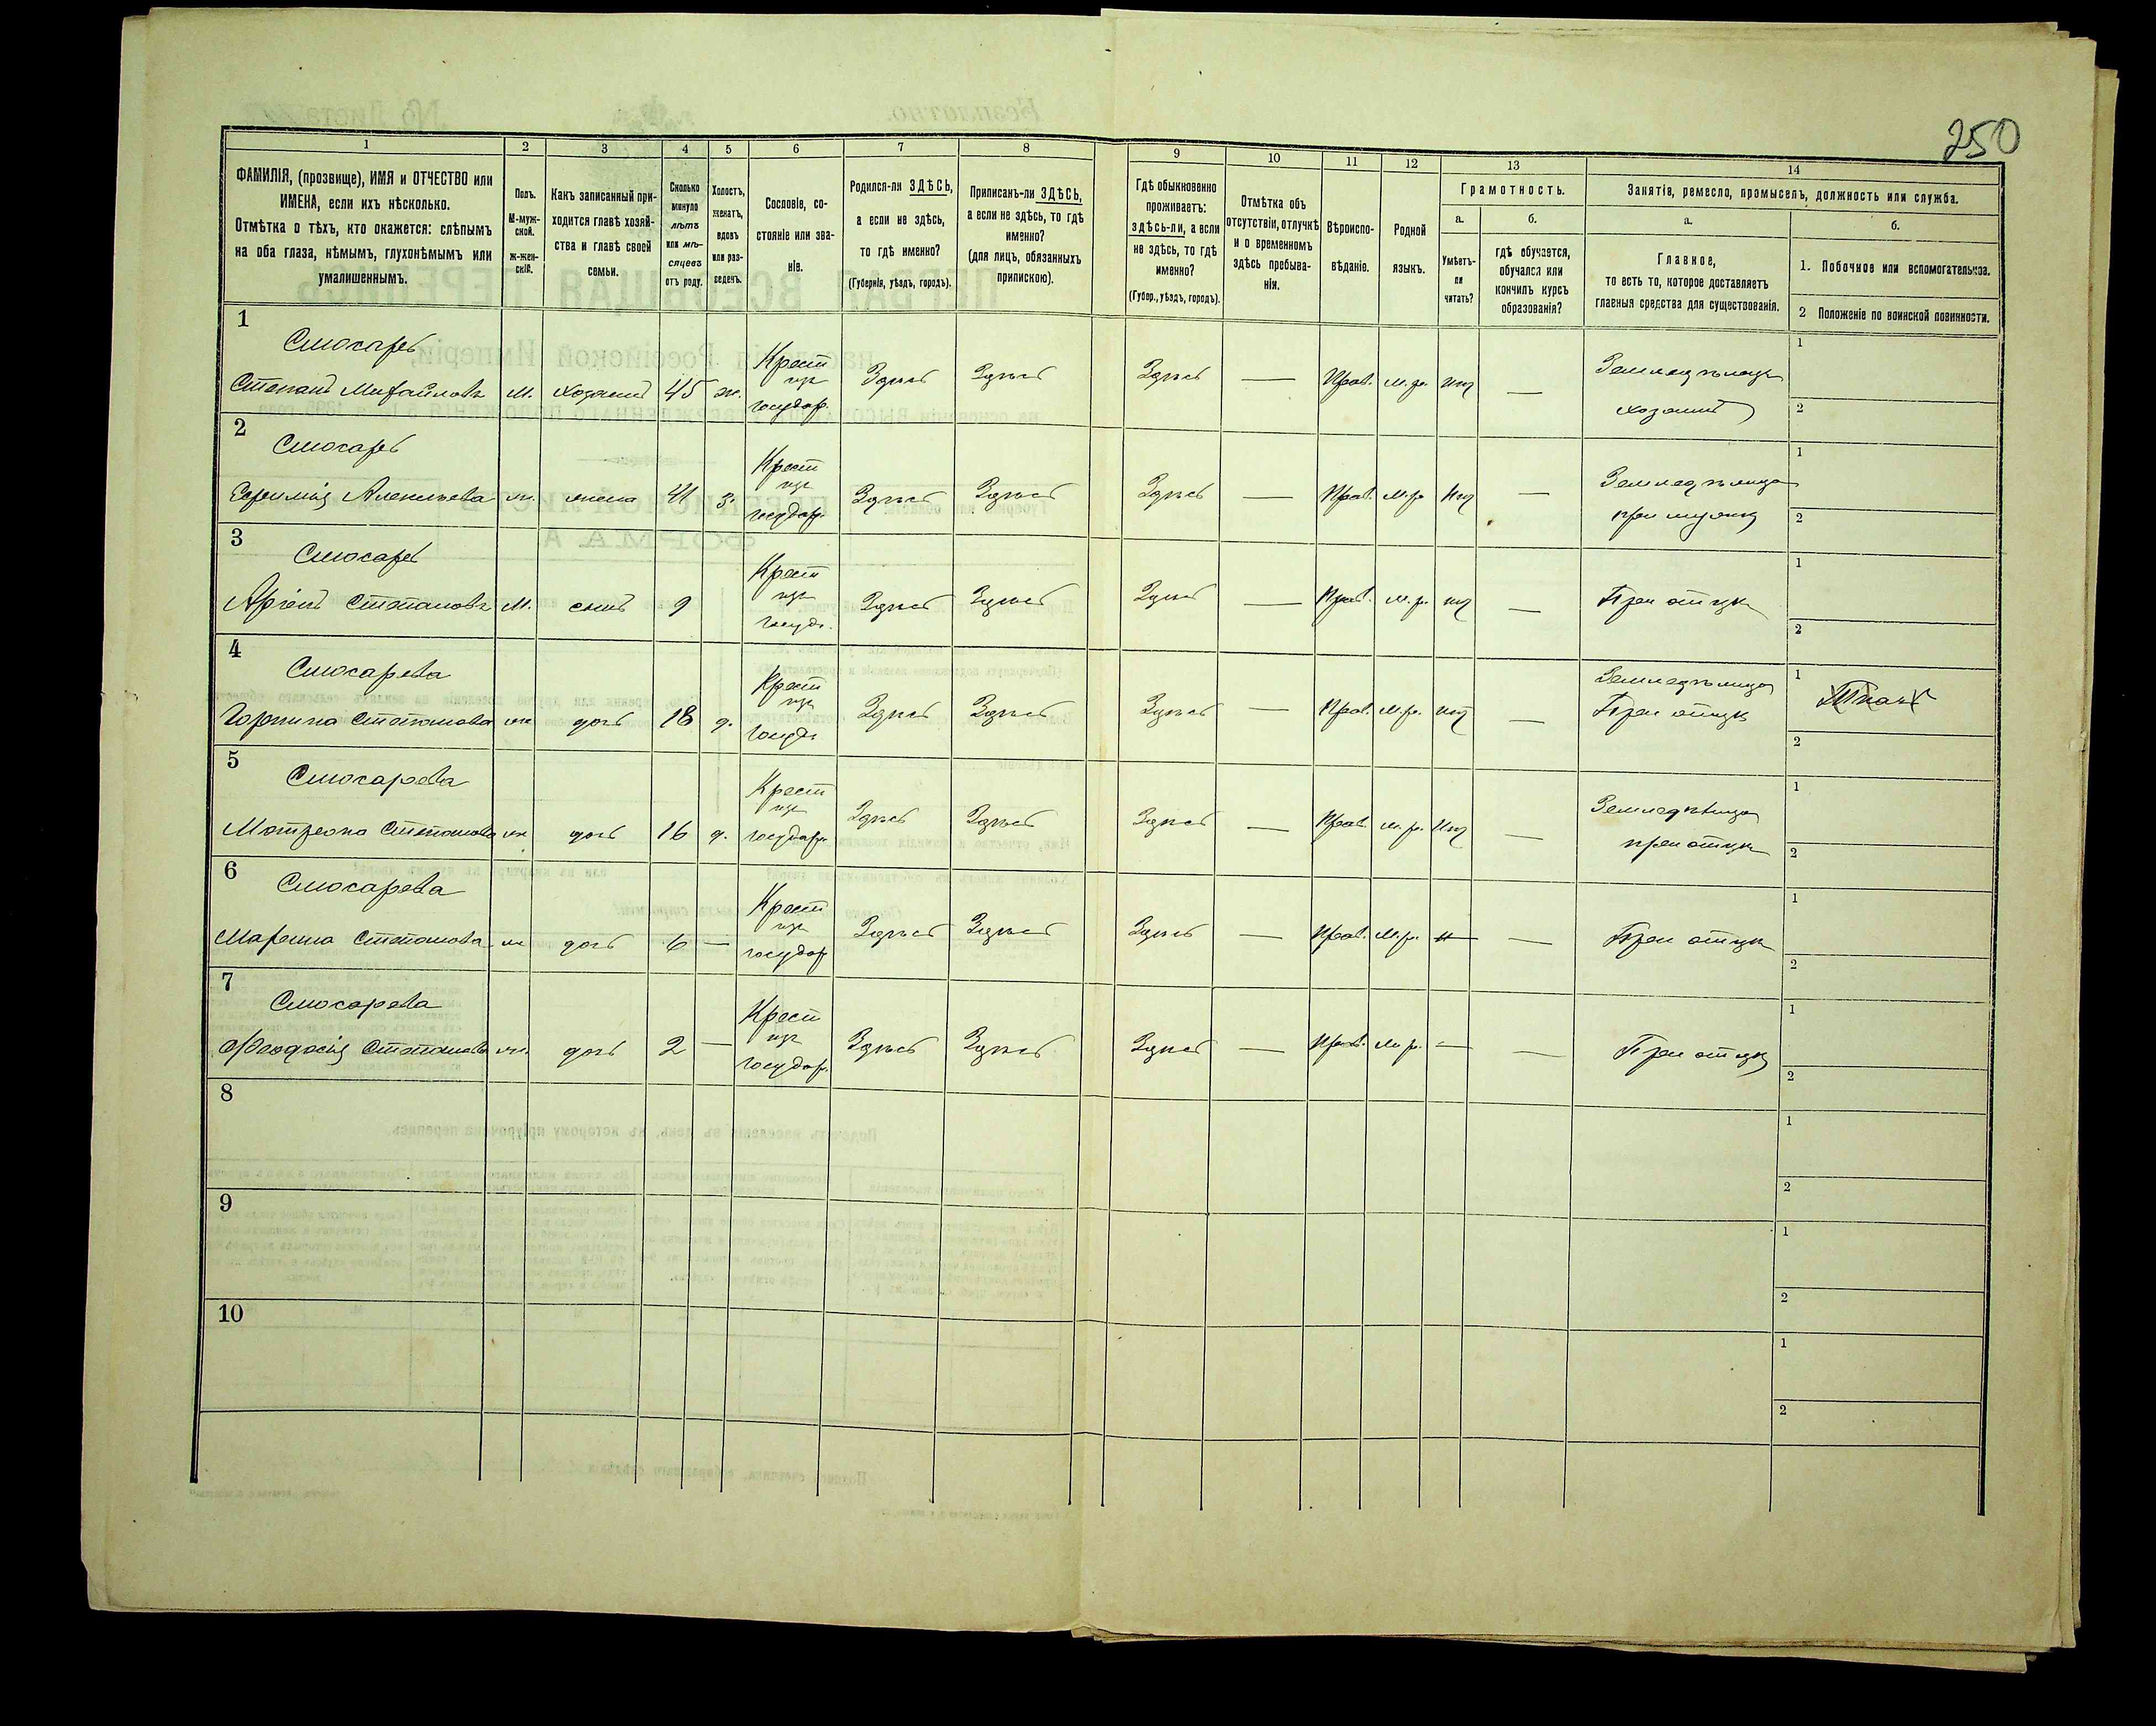 250
1 2 3 4 5 6 7 8 9 10 11 12 13 14
ФАМИЛІЯ, (прозвище), ИМЯ и ОТЧЕСТВО или
ИМЕНА, если ихъ нѣсколько.
Отмѣтка о тѣхъ, кто окажется: слѣпымъ
на оба глаза, нѣмымъ, глухонѣмымъ или
умалишеннымъ.
Полъ.
М-муж-
ской.
ж-жен-
скій.
Какъ записанный при-
ходится главѣ хозяй-
ства и главѣ своей
семьи.
Сколько
минуло
лѣтъ
или мѣ-
сяцевъ
отъ роду.
Холостъ,
женатъ,
вдовъ
или раз-
веденъ.
Сословіе, со-
стояніе или зва-
ніе.
Родился-ли ЗДѢСЬ,
а если не здѣсь,
то гдѣ именно?
(Губернія, уѣздъ, городъ).
Приписанъ-ли ЗДѢСЬ,
а если не здѣсь, то гдѣ
именно?
(для лицъ, обязанныхъ
припискою).
Гдѣ обыкновенно
проживаетъ:
здѣсь-ли, а если
не здѣсь, то гдѣ
именно?
(Губер., уѣздъ, городъ).
Отмѣтка объ
отсутствіи, отлучкѣ
и о временномъ
здѣсь пребыва-
ніи.
Вѣроиспо-
вѣданіе.
Родной
языкъ.
Грамотность.
а.
Умѣетъ-
ли
читать?
б.
гдѣ обучается,
обучался или
кончилъ курсъ
образованія?
Занятіе, ремесло, промыселъ, должность или служба.
а.
Главное,
то есть то, которое доставляетъ
главныя средства для существованія.
б.
1. Побочное или вспомогательное.
2 Положеніе по воинской повинности.
1
Слюсарь
Степанъ Михайловъ М. хозяинъ 45 ж.
Крест
изъ
государ.
Здѣсь Здѣсь Здѣсь — Прав. м.р. —
Земледѣлецъ
хозяинъ
1
2
2
Слюсарь
Ефимія Алексѣева ж. жена 41 з.
Крест
изъ
государ.
Здѣсь Здѣсь Здѣсь — Прав. м.р. —
Земледѣлица
при мужѣ
1
2
3
Слюсарь
Степановъ М. сынъ 9
Крест
изъ
госуд.
Здѣсь Здѣсь Здѣсь — Прав. м.р. —
При отцѣ
1
2
4
Слюсарева
Горпина Степанова ж. дочь 18 д.
Крест
изъ
госуд.
Здѣсь Здѣсь Здѣсь — Прав. м.р. —
Земледѣлица
При отцѣ
1
2
5
Слюсарева
Мотрона Степанова ж. дочь 16 д.
Крест
изъ
государ.
Здѣсь Здѣсь Здѣсь — Прав. м.р. —
Земледѣлица
при отцѣ
1
2
6
Слюсарева
Марина Степанова ж. дочь 6 —
Крест
изъ
государ
Здѣсь Здѣсь Здѣсь — Прав. м.р. —
При отцѣ
1
2
7
Слюсарева
Феодосія Степанова ж. дочь 2 —
Крест
изъ
государ.
Здѣсь Здѣсь Здѣсь — Прав. м.р. — —
При отцѣ
1
2
8
1
2
9
1
2
10
1
2